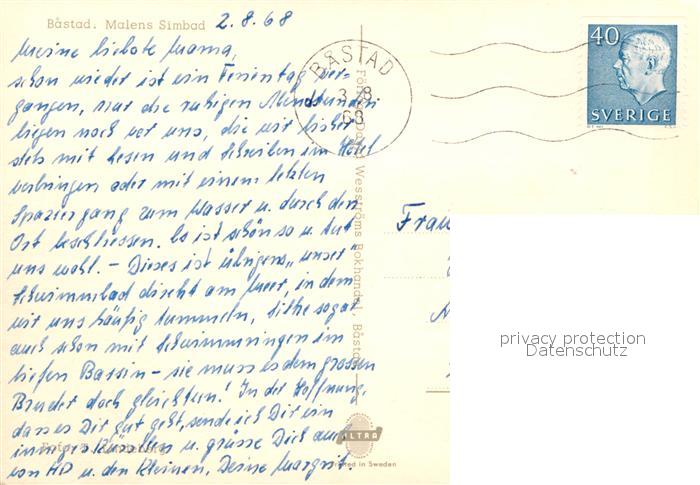 Båstad. Malens Simbad
2.8.68
Meine liebste Mama,
schon wieder ist ein Ferientag ver-
gangen, nur die ruhigen Abendstunden
liegen noch vor uns, die wir bisher
stets mit Lesen und Schreiben im Hotel
verbringen oder mit einem letzten
Spaziergang zum Wasser u. durch den
Ort beschliessen. Es ist schön so u. tut
uns wohl. – Dieses ist übrigens „unser"
Schwimmbad direkt am Meer, in dem
wir uns häufig tummeln, Silke sogar
auch schon mit Schwimmringen im
tiefen Bassin – sie muss es dem grossen
Bruder doch gleichtun! In der Hoffnung,
dass es Dir gut geht, sende ich Dir ein
inniges Küsschen u. grüsse Dich auch
von HD u. den Kleinen, Deine Margrit.
BÅSTAD
3 8
68
40
SVERIGE
Wesströms Bokhandel, Båstad
Frau
privacy protection
Datenschutz
Foto:
ULTRA
Printed in Sweden